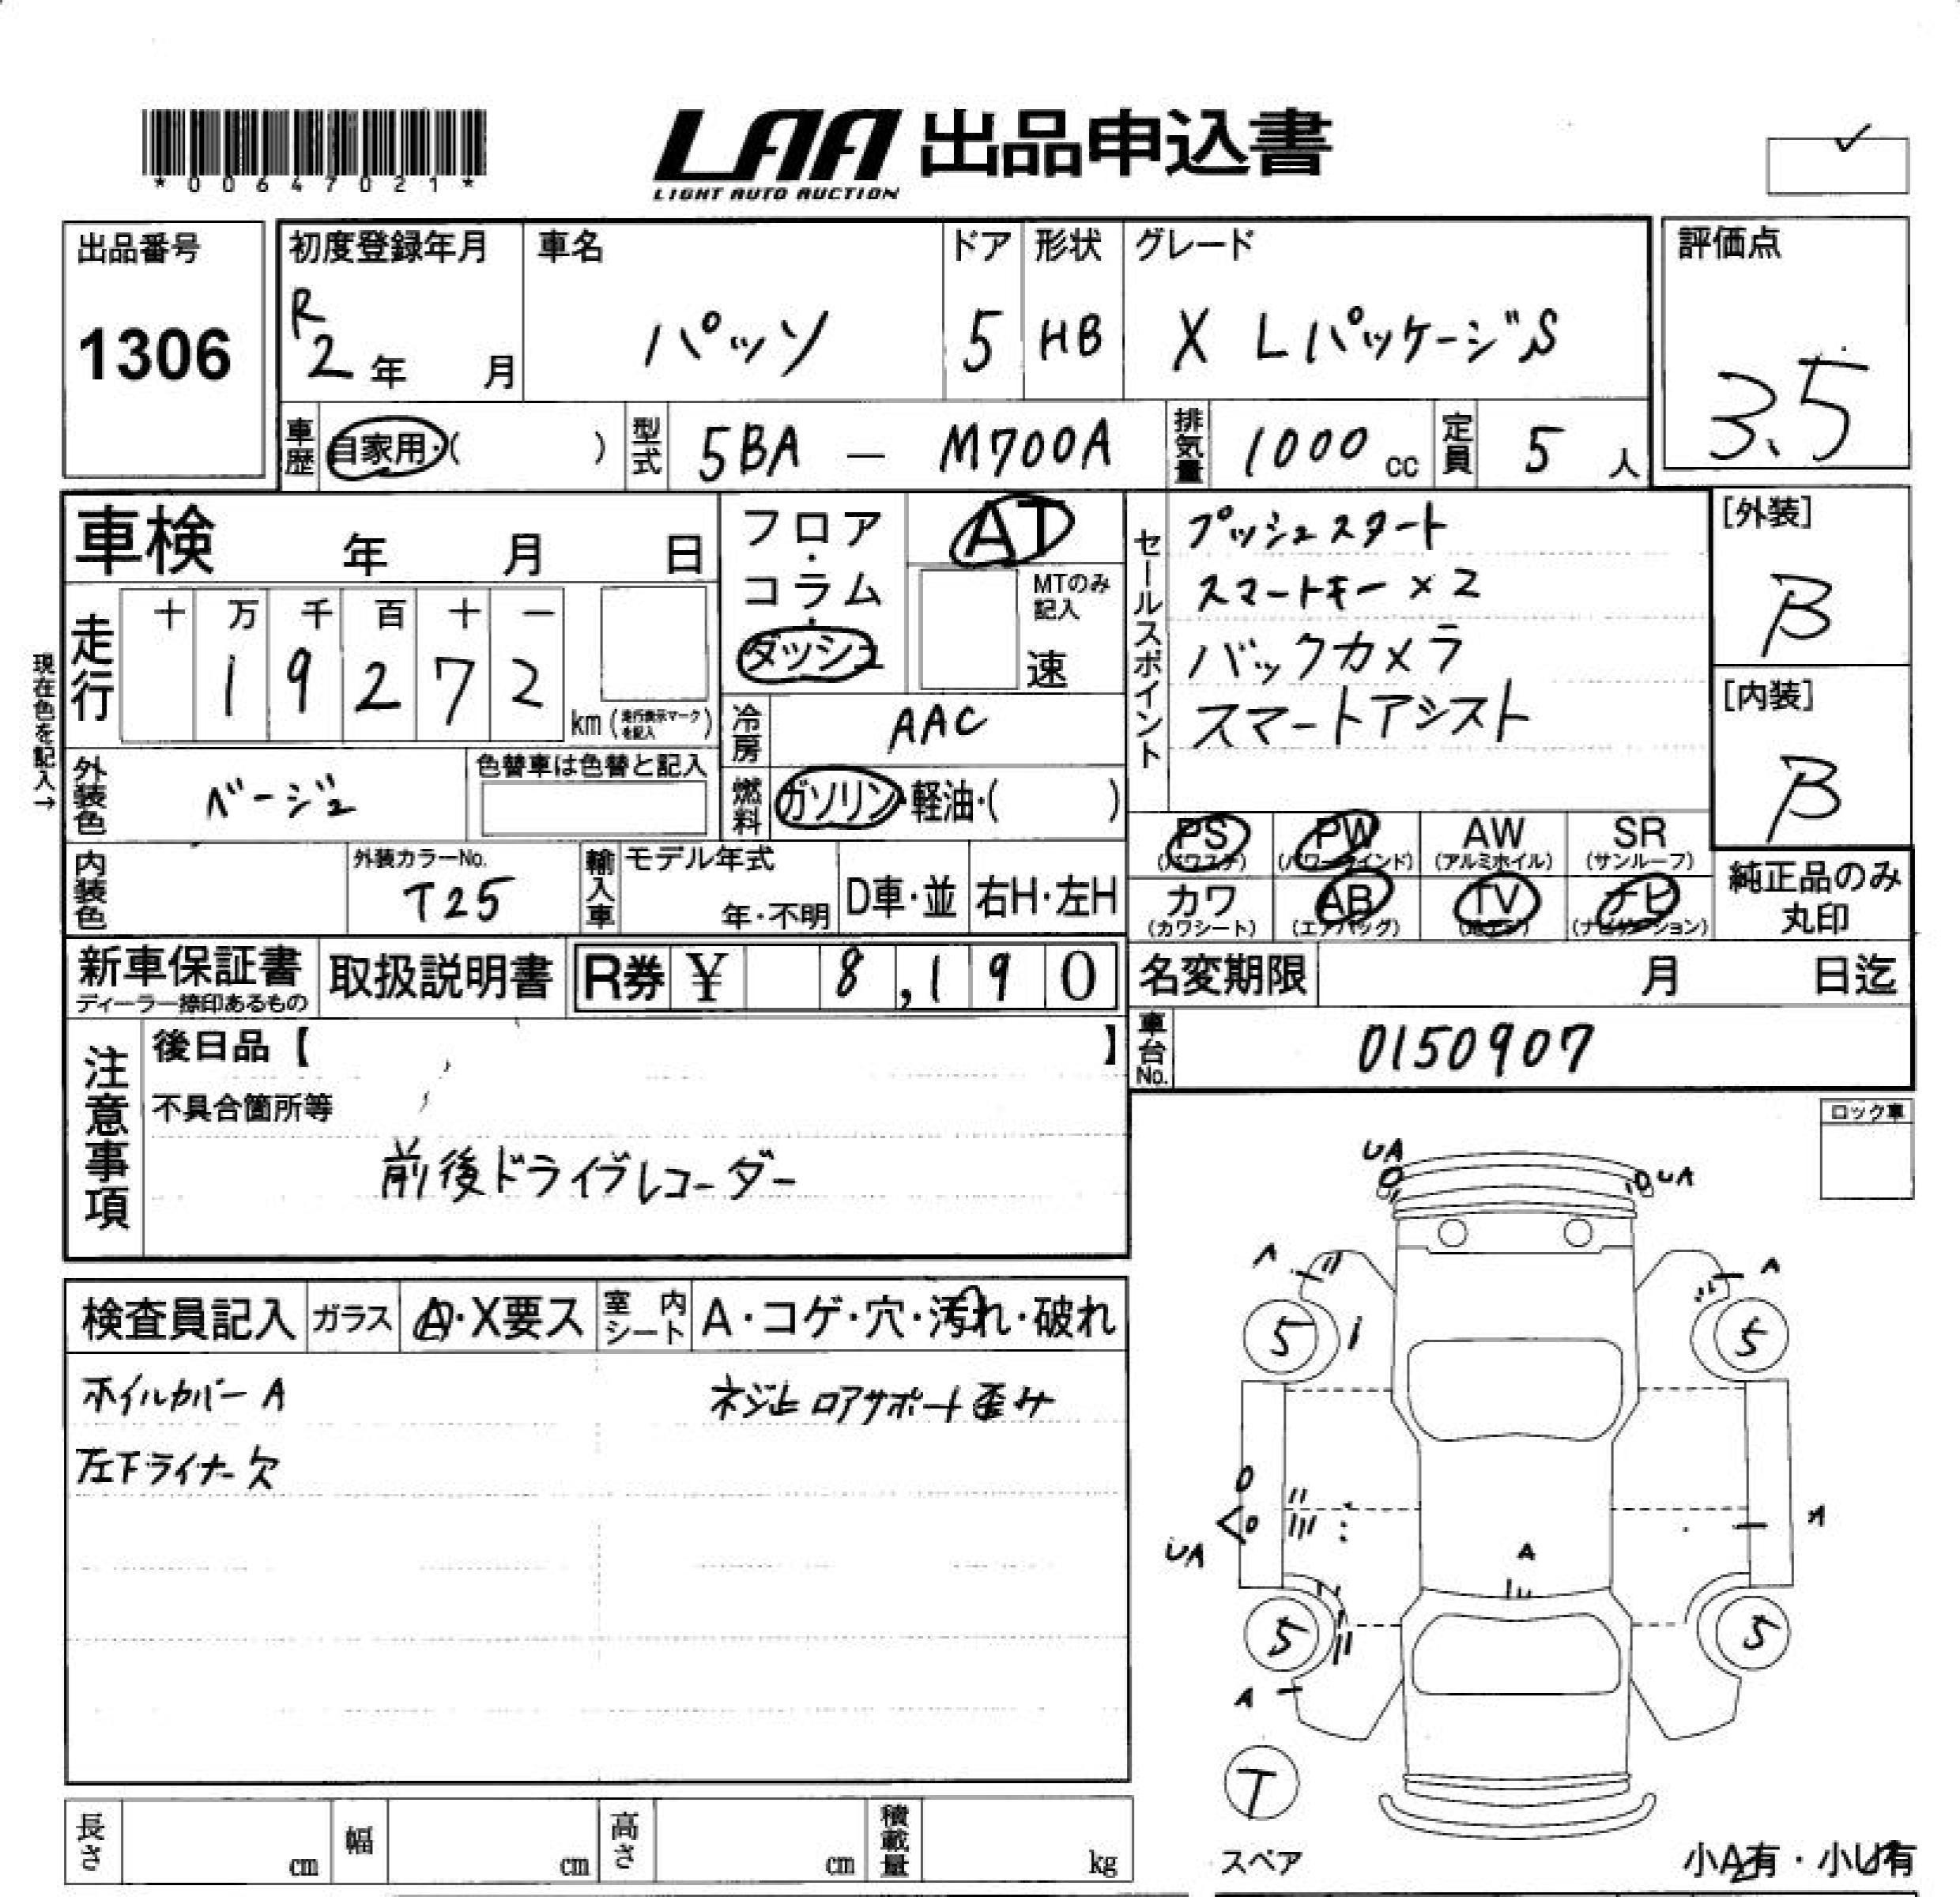 *00647021*
LAA 出品申込書
LIGHT AUTO AUCTION
出品番号
1306
初度登録年月
R
2年 月
車名
パッソ
ドア
5
形状
HB
グレード
X LパッケージS
評価点
3.5
車歴
自家用・( )
型式
5BA - M700A
排気量
1000 cc
定員
5 人
車検 年 月 日
フロア・コラム・ダッシュ
AT
MTのみ記入
速
セールスポイント
プッシュスタート
スマートキー×2
バックカメラ
スマートアシスト
[外装]
B
[内装]
B
現在色を記入→
走行
十 万 千 百 十 一
1 9 2 7 2
km (走行表示マークを記入)
冷房
AAC
外装色
ベージュ
色替車は色替と記入
燃料
ガソリン・軽油・( )
PS (パワステ)
PW (パワーウインド)
AW (アルミホイル)
SR (サンルーフ)
カワ (カワシート)
AB (エアバッグ)
TV (地デジ)
ナビ (ナビゲーション)
純正品のみ
丸印
内装色
外装カラーNo.
T25
輸入車
モデル年式
年・不明
D車・並
右H・左H
新車保証書
ディーラー捺印あるもの
取扱説明書
R券 ¥ 8,190
名変期限 月 日迄
車台No.
0150907
注意事項
後日品【 】
不具合箇所等
前後ドライブレコーダー
ロック車
UA
UA
A
A
5
5
UA
A
A
5
5
A
T
スペア
小A有・小U有
検査員記入
ガラス
A・X要ス
室内シート
A・コゲ・穴・汚れ・破れ
ホイルカバーA
ネジ止ロアサポート歪み
左下ライナー欠
長さ cm
幅 cm
高さ cm
積載量 kg